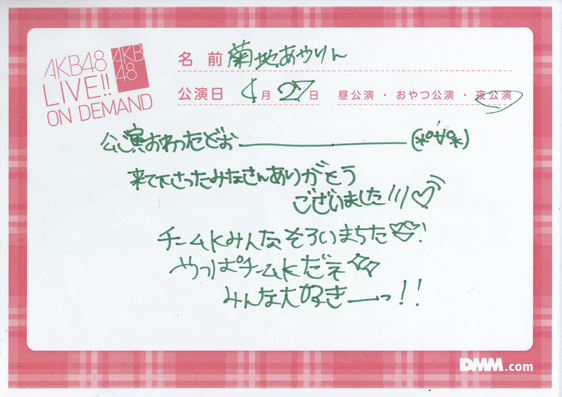 AKB48
LIVE!!
ON DEMAND
AKB
48
名 前 菊地あやりん
公演日 4月27日 昼公演・おやつ公演・夜公演
公演おわったどぉーーーーー(*°∀°*)
来て下さったみなさんありがとう
ございました!!!♡
チームKみんなそろいまちた♡!
やっぱチームKだぇ☆☆
みんな大好きーっ!!
DMM.com